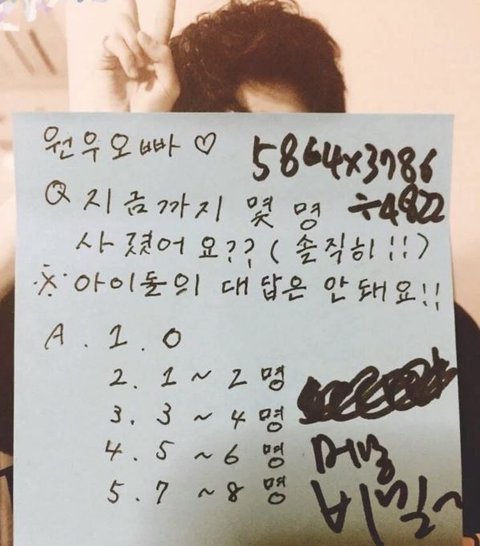 원우오빠 ♡
5864x3786
÷4822
Q 지금까지 몇 명
사겼어요?? (솔직히!!)
※ 아이돌의 대답은 안돼요!!
A. 1. 0
2. 1~2명
3. 3~4명
4. 5~6명
5. 7~8명
비밀~